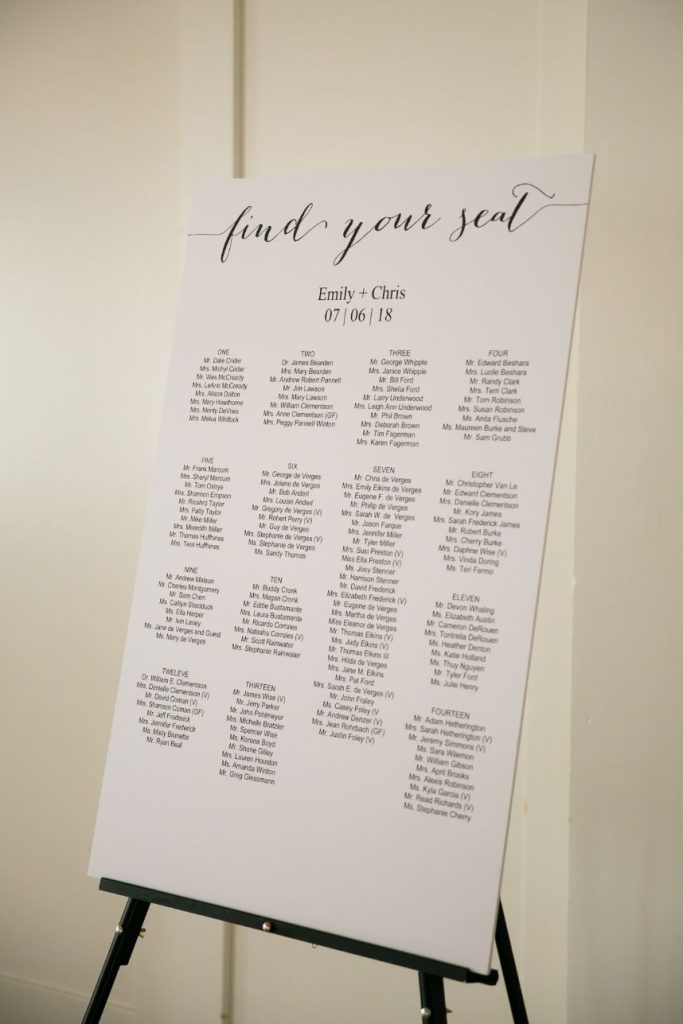 find your seat
Emily + Chris
07 | 06 | 18
ONE
Mr. Dale Crider
Mrs. Michyl Crider
Mr. Wes McCready
Mrs. LeAnn McCready
Mrs. Alison Dalton
Mrs. Mary Hawthorne
Mrs. Monty DeVries
Mrs. Melva Whitlock
TWO
Dr. James Bearden
Mrs. Mary Bearden
Mr. Andrew Robert Pannell
Mr. Jim Lawson
Mrs. Mary Lawson
Mr. William Clementson
Mrs. Anne Clementson (GF)
Mrs. Peggy Pannell Winton
THREE
Mr. George Whipple
Mrs. Janice Whipple
Mr. Bill Ford
Mrs. Shelia Ford
Mr. Larry Underwood
Mrs. Leigh Ann Underwood
Mr. Phil Brown
Mrs. Deborah Brown
Mr. Tim Fagerman
Mrs. Karen Fagerman
FOUR
Mr. Edward Beshara
Mrs. Lucile Beshara
Mr. Randy Clark
Mrs. Terri Clark
Mr. Tom Robinson
Mrs. Susan Robinson
Ms. Anita Flusche
Ms. Maureen Burke and Steve
Mr. Sam Grubb
FIVE
Mr. Frank Marcum
Mrs. Sharyl Marcum
Mr. Tom Ostrye
Mrs. Shannon Empson
Mr. Ricahrd Taylor
Mrs. Patty Taylor
Mr. Mike Miller
Mrs. Meredith Miller
Mr. Thomas Huffhines
Mrs. Terri Huffhines
SIX
Mr. George de Verges
Mrs. Jolene de Verges
Mr. Bob Anderl
Mrs. Louise Anderl
Mr. Gregory de Verges (V)
Mr. Robert Perry (V)
Mr. Guy de Verges
Mrs. Stephanie de Verges (V)
Ms. Stephanie de Verges
Ms. Sandy Thomas
SEVEN
Mr. Chris de Verges
Mrs. Emily Elkins de Verges
Mr. Eugene F. de Verges
Mr. Philip de Verges
Mrs. Sarah W. de Verges
Mr. Jason Farque
Mrs. Jennifer Miller
Mr. Tyler Miller
Mrs. Susi Preston (V)
Miss Ella Preston (V)
Ms. Joey Stenner
Mr. Harrison Stenner
Mr. David Frederick
Mrs. Elizabeth Frederick (V)
Mr. Eugene de Verges
Mrs. Martha de Verges
Miss Eleanor de Verges
Mr. Thomas Elkins (V)
Mrs. Judy Elkins (V)
Mr. Thomas Elkins III
Mrs. Hilda de Verges
Mrs. Jane M. Elkins
Mrs. Pat Ford
Mrs. Sarah E. de Verges (V)
Mr. John Fraley
Ms. Casey Foley (V
Mr. Andrew Denzer (V)
Mrs. Jean Rohrbach (GF)
Mr. Justin Foley (V)
EIGHT
Mr. Christopher Van Le
Mr. Edward Clementson
Mrs. Danielle Clementson
Mr. Kory James
Mrs. Sarah Frederick James
Mr. Robert Burke
Mrs. Cherry Burke
Mrs. Daphne Wise (V)
Mrs. Vinda Doring
Ms. Teri Fermo
NINE
Mr. Andrew Matson
Mr. Charles Montgomery
Mr. Sam Chen
Ms. Caitlyn Shadduck
Ms. Ella Harper
Mr. Ivin Laney
Ms. Jane de Verges and Guest
Ms. Mary de Verges
TEN
Mr. Buddy Cronk
Mrs. Megan Cronk
Mr. Eddie Bustamante
Mrs. Laura Bustamante
Mr. Ricardo Corrales
Mrs. Natasha Corrales (V)
Mr. Scott Rainwater
Mrs. Stephanie Rainwater
ELEVEN
Mr. Devon Whaling
Ms. Elizabeth Austin
Mr. Cameron DeRouen
Mrs. Tontrella DeRouen
Ms. Heather Denton
Ms. Katie Holland
Ms. Thuy Nguyen
Mr. Tyler Ford
Ms. Julie Henry
TWELEVE
Dr. William E. Clementson
Mrs. Danielle Clementson (V)
Mr. David Coman (V)
Mrs. Shannon Coman (GF)
Mr. Jeff Frederick
Mrs. Jennifer Frederick
Ms. Misty Brunette
Mr. Ryan Beal
THIRTEEN
Mr. James Wise (V)
Mr. Jerry Parker
Mr. John Pohlmeyer
Mrs. Michelle Bratzler
Mr. Spencer Wise
Ms. Korena Boyd
Mr. Shane Gilley
Mrs. Lauren Houston
Ms. Amanda Winton
Mr. Greg Giessmann
FOURTEEN
Mr. Adam Hetherington
Mrs. Sarah Hetherington (V)
Mr. Jeremy Simmons (V)
Ms. Sara Wilemon
Mr. William Gibson
Mrs. April Brooks
Mrs. Alexis Robinson
Ms. Kyla Garcia (V)
Mr. Read Richards (V)
Ms. Stephanie Cherry